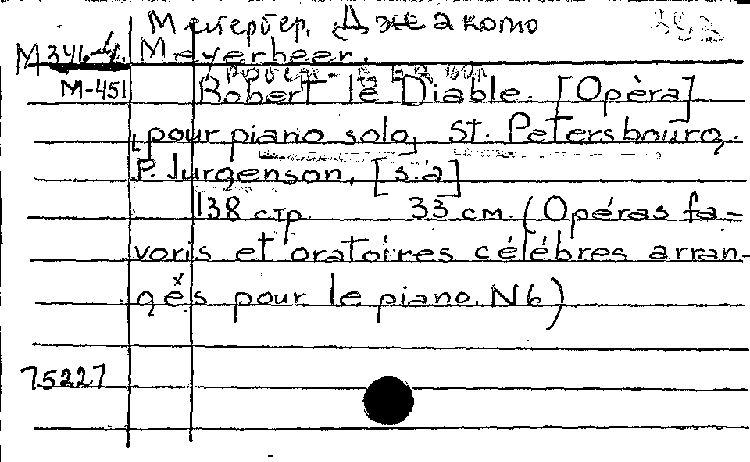 Мейербер, Джакомо
М 346-4. Meyerbeer.
М-451 Robert le Diable. [Opèra]
[pour piano solo] St. Petersbourg,
P. Jurgenson, [s.a]
138 стр. 33 см. (Opéras fa=
voris et oratoires célébres arran-
gés pour le piano. N6)
75227